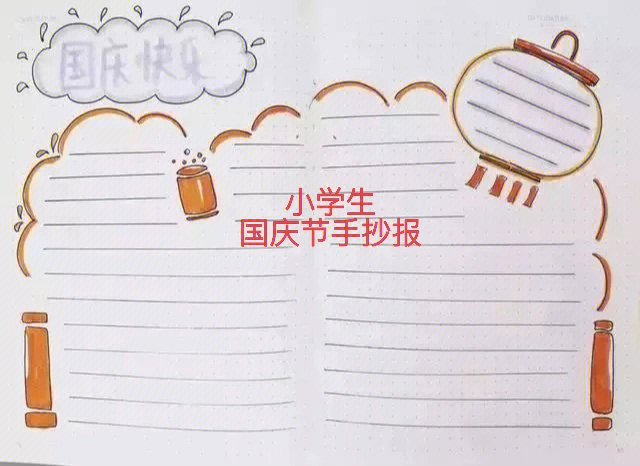 国庆快乐
小学生
国庆节手抄报